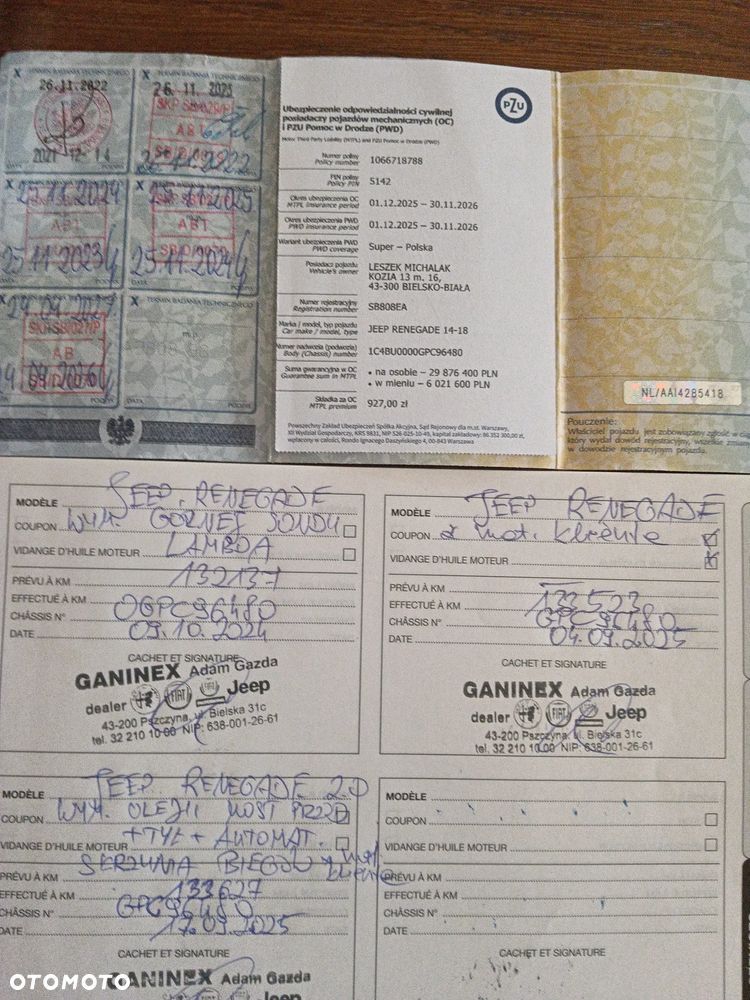 X TERMIN BADANIA TECHNICZNEGO
26.11.2022
2021 -12- 14
DATA
PODPIS
X TERMIN BADANIA TECHNICZNEGO
26. 11. 2023
SKP SB/029/P
ABT
25.11.2022
DATA
PODPIS
X TERMIN BADANIA TECHNICZNEGO
25.11.2024
ABT
25.11.2023
PODPIS
X TERMIN BADANIA TECHNICZNEGO
25.11.2025
ABT
25.11.2024
DATA
PODPIS
SKP SB/027/P
AB
PODPIS
X TERMIN BADANIA TECHNICZNEGO
m.p.
DATA
PODPIS
PZU
Ubezpieczenie odpowiedzialności cywilnej
posiadaczy pojazdów mechanicznych (OC)
i PZU Pomoc w Drodze (PWD)
Motor Third Party Liability (MTPL) and PZU Pomoc w Drodze (PWD)
Numer polisy
Policy number
1066718788
PIN polisy
Policy PIN
5142
Okres ubezpieczenia OC
MTPL insurance period
01.12.2025 – 30.11.2026
Okres ubezpieczenia PWD
PWD insurance period
01.12.2025 – 30.11.2026
Wariant ubezpieczenia PWD
PWD coverage
Super – Polska
Posiadacz pojazdu
Vehicle's owner
LESZEK MICHALAK
KOZIA 13 m. 16,
43-300 BIELSKO-BIAŁA
Numer rejestracyjny
Registration number
SB808EA
Marka / model, typ pojazdu
Car make / model, type
JEEP RENEGADE 14-18
Numer nadwozia (podwozia)
Body (Chassis) number
1C4BU0000GPC96480
Suma gwarancyjna w OC
Guarantee sum in MTPL
• na osobie – 29 876 400 PLN
• w mieniu – 6 021 600 PLN
Składka za OC
MTPL premium
927,00 zł
Powszechny Zakład Ubezpieczeń Spółka Akcyjna, Sąd Rejonowy dla m.st. Warszawy,
XII Wydział Gospodarczy, KRS 9831, NIP 526-025-10-49, kapitał zakładowy: 86 352 300,00 zł,
wpłacony w całości, Rondo Ignacego Daszyńskiego 4, 00-843 Warszawa
NL/AAI4285418
Pouczenie:
Właściciel pojazdu jest zobowiązany zgłosić w
który wydał dowód rejestracyjny, wszelkie
w dowodzie rejestracyjnym pojazdu.
MODÈLE JEEP RENEGADE
COUPON WYM. GÓRNEJ SONDY
VIDANGE D'HUILE MOTEUR LAMBDA
PRÉVU À KM
EFFECTUÉ À KM 132137
CHÂSSIS N° 0GPC96480
DATE 09.10.2024
CACHET ET SIGNATURE
GANINEX Adam Gazda
dealer FIAT Jeep
43-200 Pszczyna, ul. Bielska 31c
tel. 32 210 10 00 NIP: 638-001-26-61
MODÈLE JEEP RENEGADE
COUPON z mat. klienta
VIDANGE D'HUILE MOTEUR
PRÉVU À KM
EFFECTUÉ À KM 133523
CHÂSSIS N° GPC96480
DATE 04.09.2025
CACHET ET SIGNATURE
GANINEX Adam Gazda
dealer FIAT Jeep
43-200 Pszczyna, ul. Bielska 31c
tel. 32 210 10 00 NIP: 638-001-26-61
MODÈLE JEEP RENEGADE 2.0
COUPON WYM. OLEJU MOST PRZÓD
VIDANGE D'HUILE MOTEUR + TYŁ + AUTOMAT.
SKRZYNIA BIEGÓW z mat.
PRÉVU À KM klienta
EFFECTUÉ À KM 133627
CHÂSSIS N° GPC96480
DATE 17.09.2025
CACHET ET SIGNATURE
GANINEX Adam Gazda
Jeep
MODÈLE
COUPON
VIDANGE D'HUILE MOTEUR
PRÉVU À KM
EFFECTUÉ À KM
CHÂSSIS N°
DATE
CACHET ET SIGNATURE
OTOMOTO